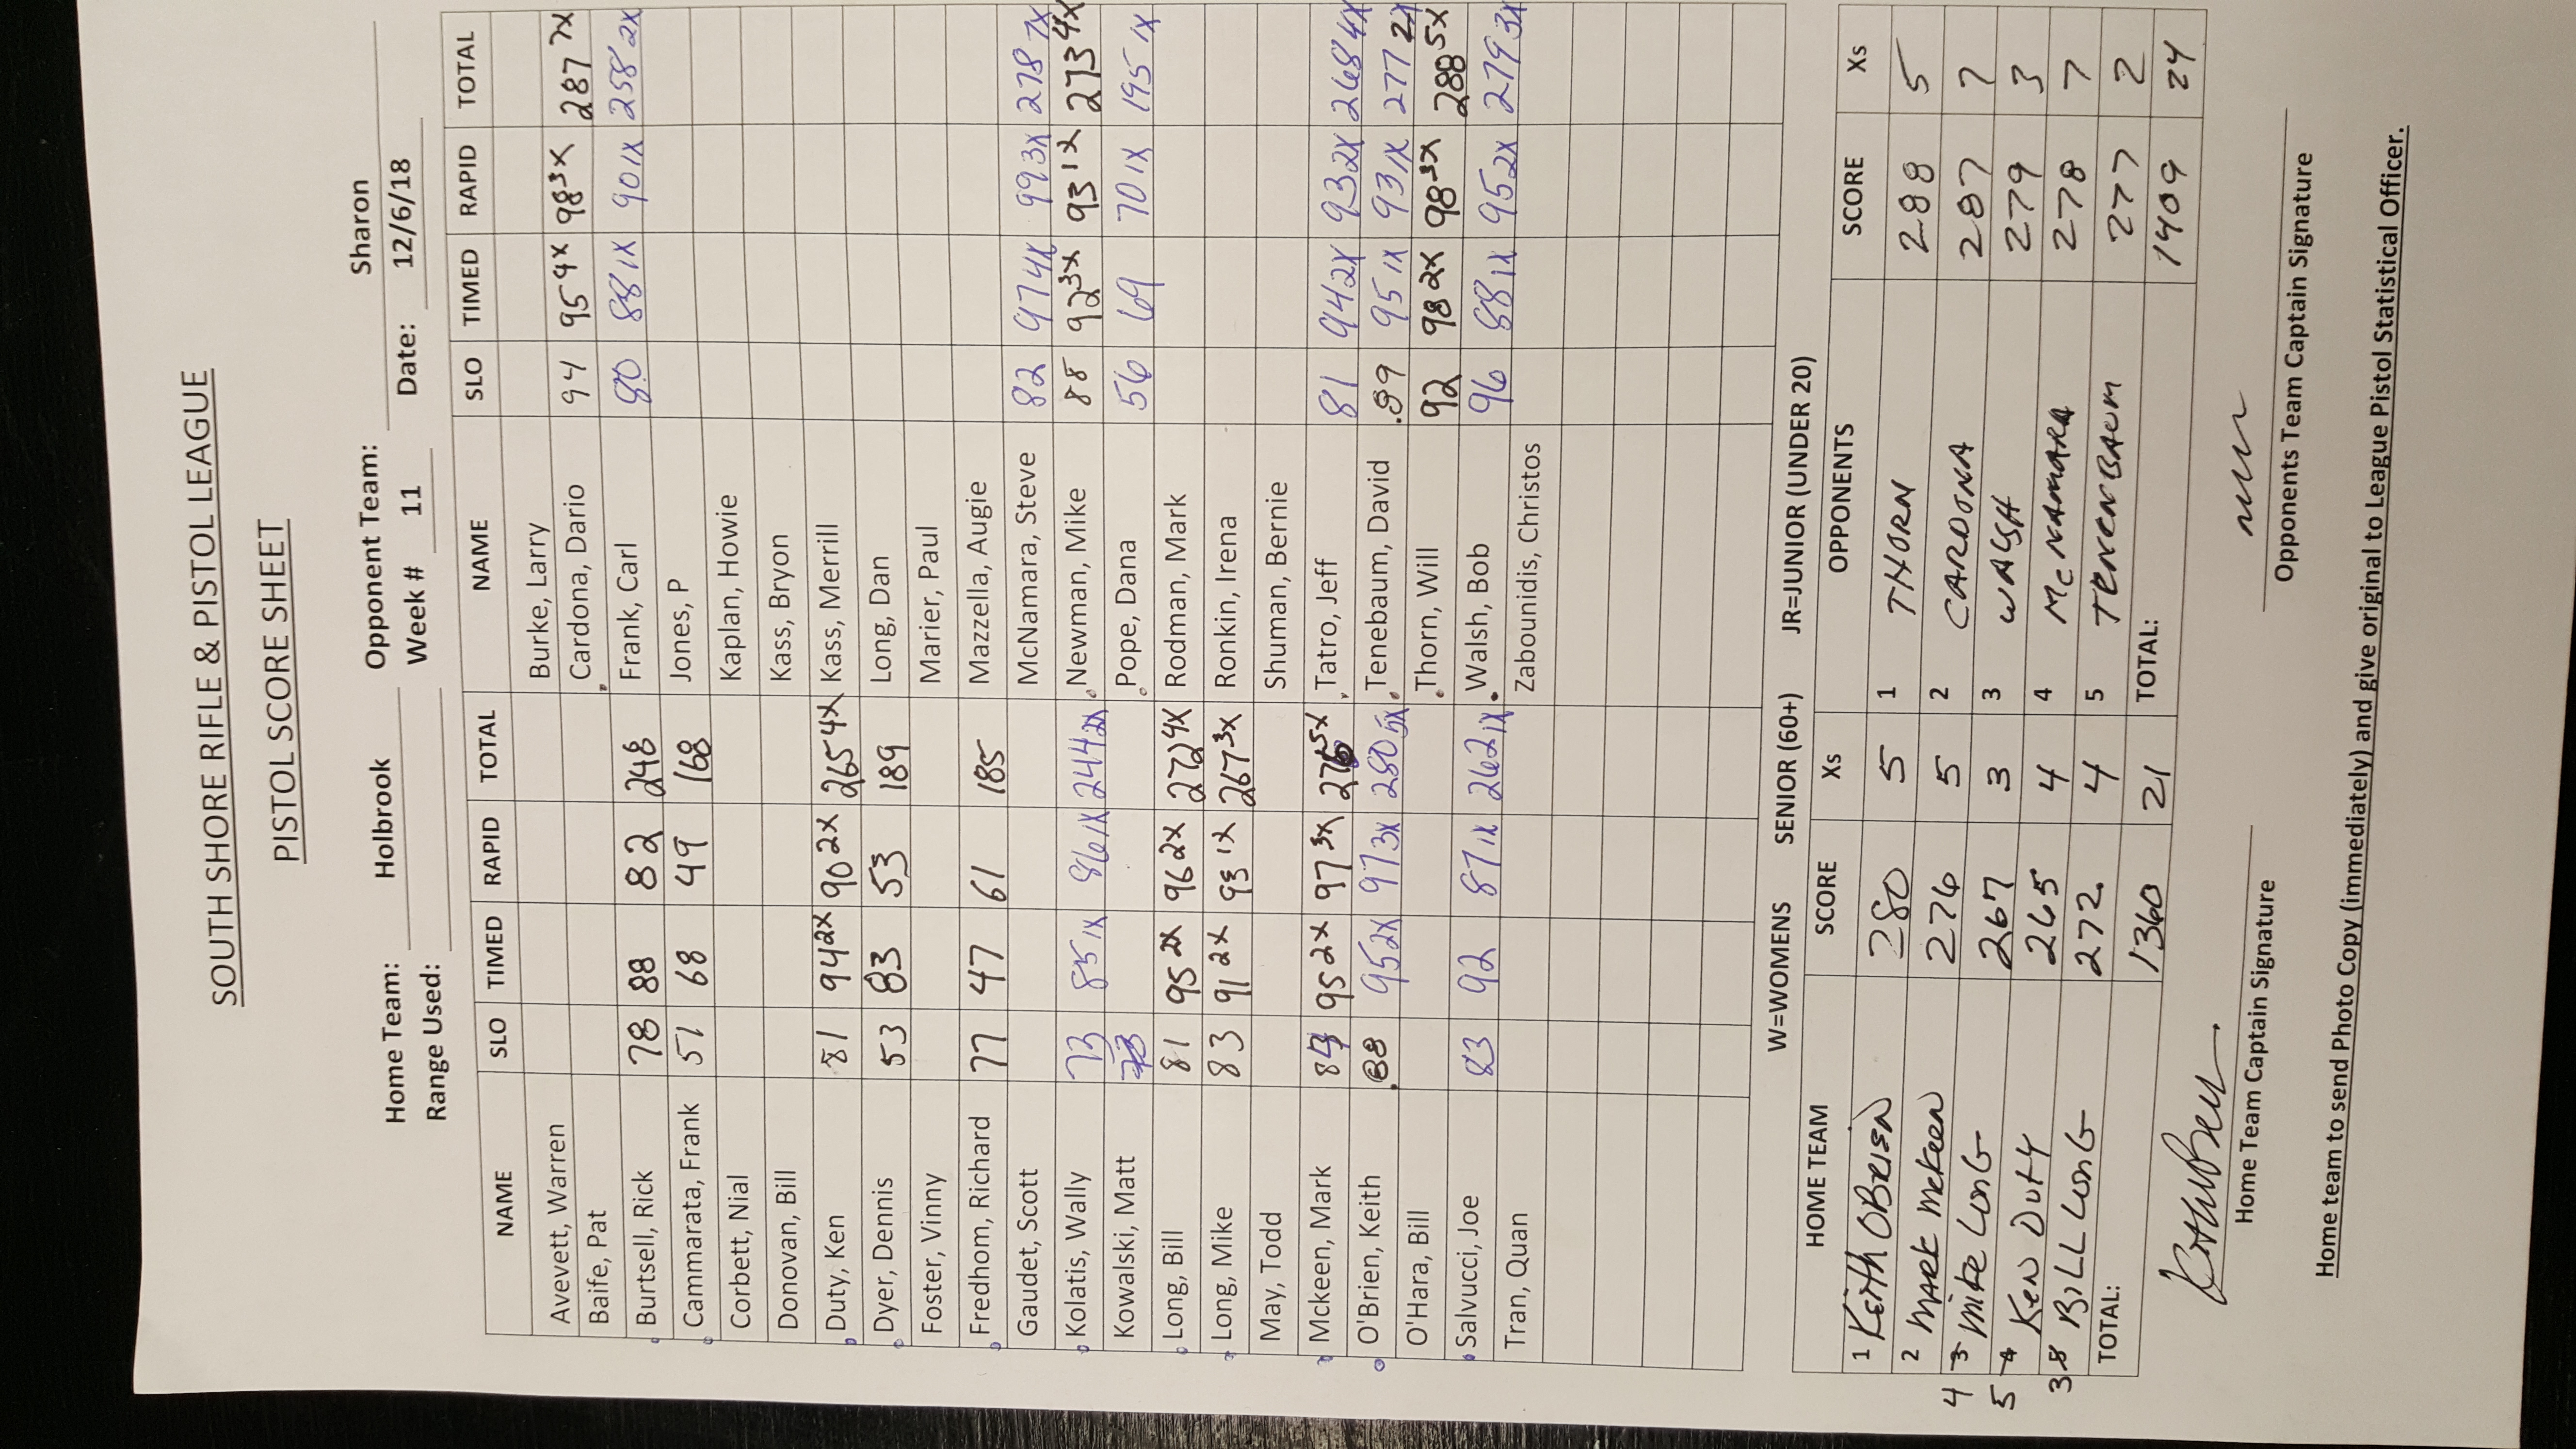 SOUTH SHORE RIFLE & PISTOL LEAGUE
PISTOL SCORE SHEET
Home Team: Holbrook Opponent Team: Sharon
Range Used: Week # 11 Date: 12/6/18
NAME SLO TIMED RAPID TOTAL NAME SLO TIMED RAPID TOTAL
Avevett, Warren Burke, Larry
Baife, Pat Cardona, Dario 94 95 4X 98 3X 287 7X
Burtsell, Rick 78 88 82 248 Frank, Carl 80 88 1X 90 1X 258 2X
Cammarata, Frank 51 68 49 168 Jones, P
Corbett, Nial Kaplan, Howie
Donovan, Bill Kass, Bryon
Duty, Ken 81 94 2X 90 2X 265 4X Kass, Merrill
Dyer, Dennis 53 83 53 189 Long, Dan
Foster, Vinny Marier, Paul
Fredhom, Richard 77 47 61 185 Mazzella, Augie
Gaudet, Scott McNamara, Steve 82 97 4X 99 3X 278 7X
Kolatis, Wally 73 85 1X 86 1X 244 2X Newman, Mike 88 92 3X 93 1X 273 4X
Kowalski, Matt 73 Pope, Dana 56 69 70 1X 195 1X
Long, Bill 81 95 2X 96 2X 272 4X Rodman, Mark
Long, Mike 83 91 2X 93 1X 267 3X Ronkin, Irena
May, Todd Shuman, Bernie
Mckeen, Mark 84 95 2X 97 3X 276 5X Tatro, Jeff 81 94 2X 93 2X 268 4X
O'Brien, Keith 88 95 2X 97 3X 280 5X Tenebaum, David 89 95 1X 93 1X 277 2X
O'Hara, Bill Thorn, Will 92 98 2X 98 3X 288 5X
Salvucci, Joe 83 92 87 1X 262 1X Walsh, Bob 96 88 1X 95 2X 279 3X
Tran, Quan Zabounidis, Christos
W=WOMENS SENIOR (60+) JR=JUNIOR (UNDER 20)
HOME TEAM SCORE Xs OPPONENTS SCORE Xs
1 Keith OBrien 280 5 1 THORN 288 5
2 MARK McKeen 276 5 2 CARDONA 287 7
4 3 Mike LonG 267 3 3 WALSH 279 3
5 4 Ken Duty 265 4 4 McNAMARA 278 7
3 BILL LonG 272 4 5 TENENBAUM 277 2
TOTAL: 1360 21 TOTAL: 1409 24
Home Team Captain Signature Opponents Team Captain Signature
Home team to send Photo Copy (immediately) and give original to League Pistol Statistical Officer.